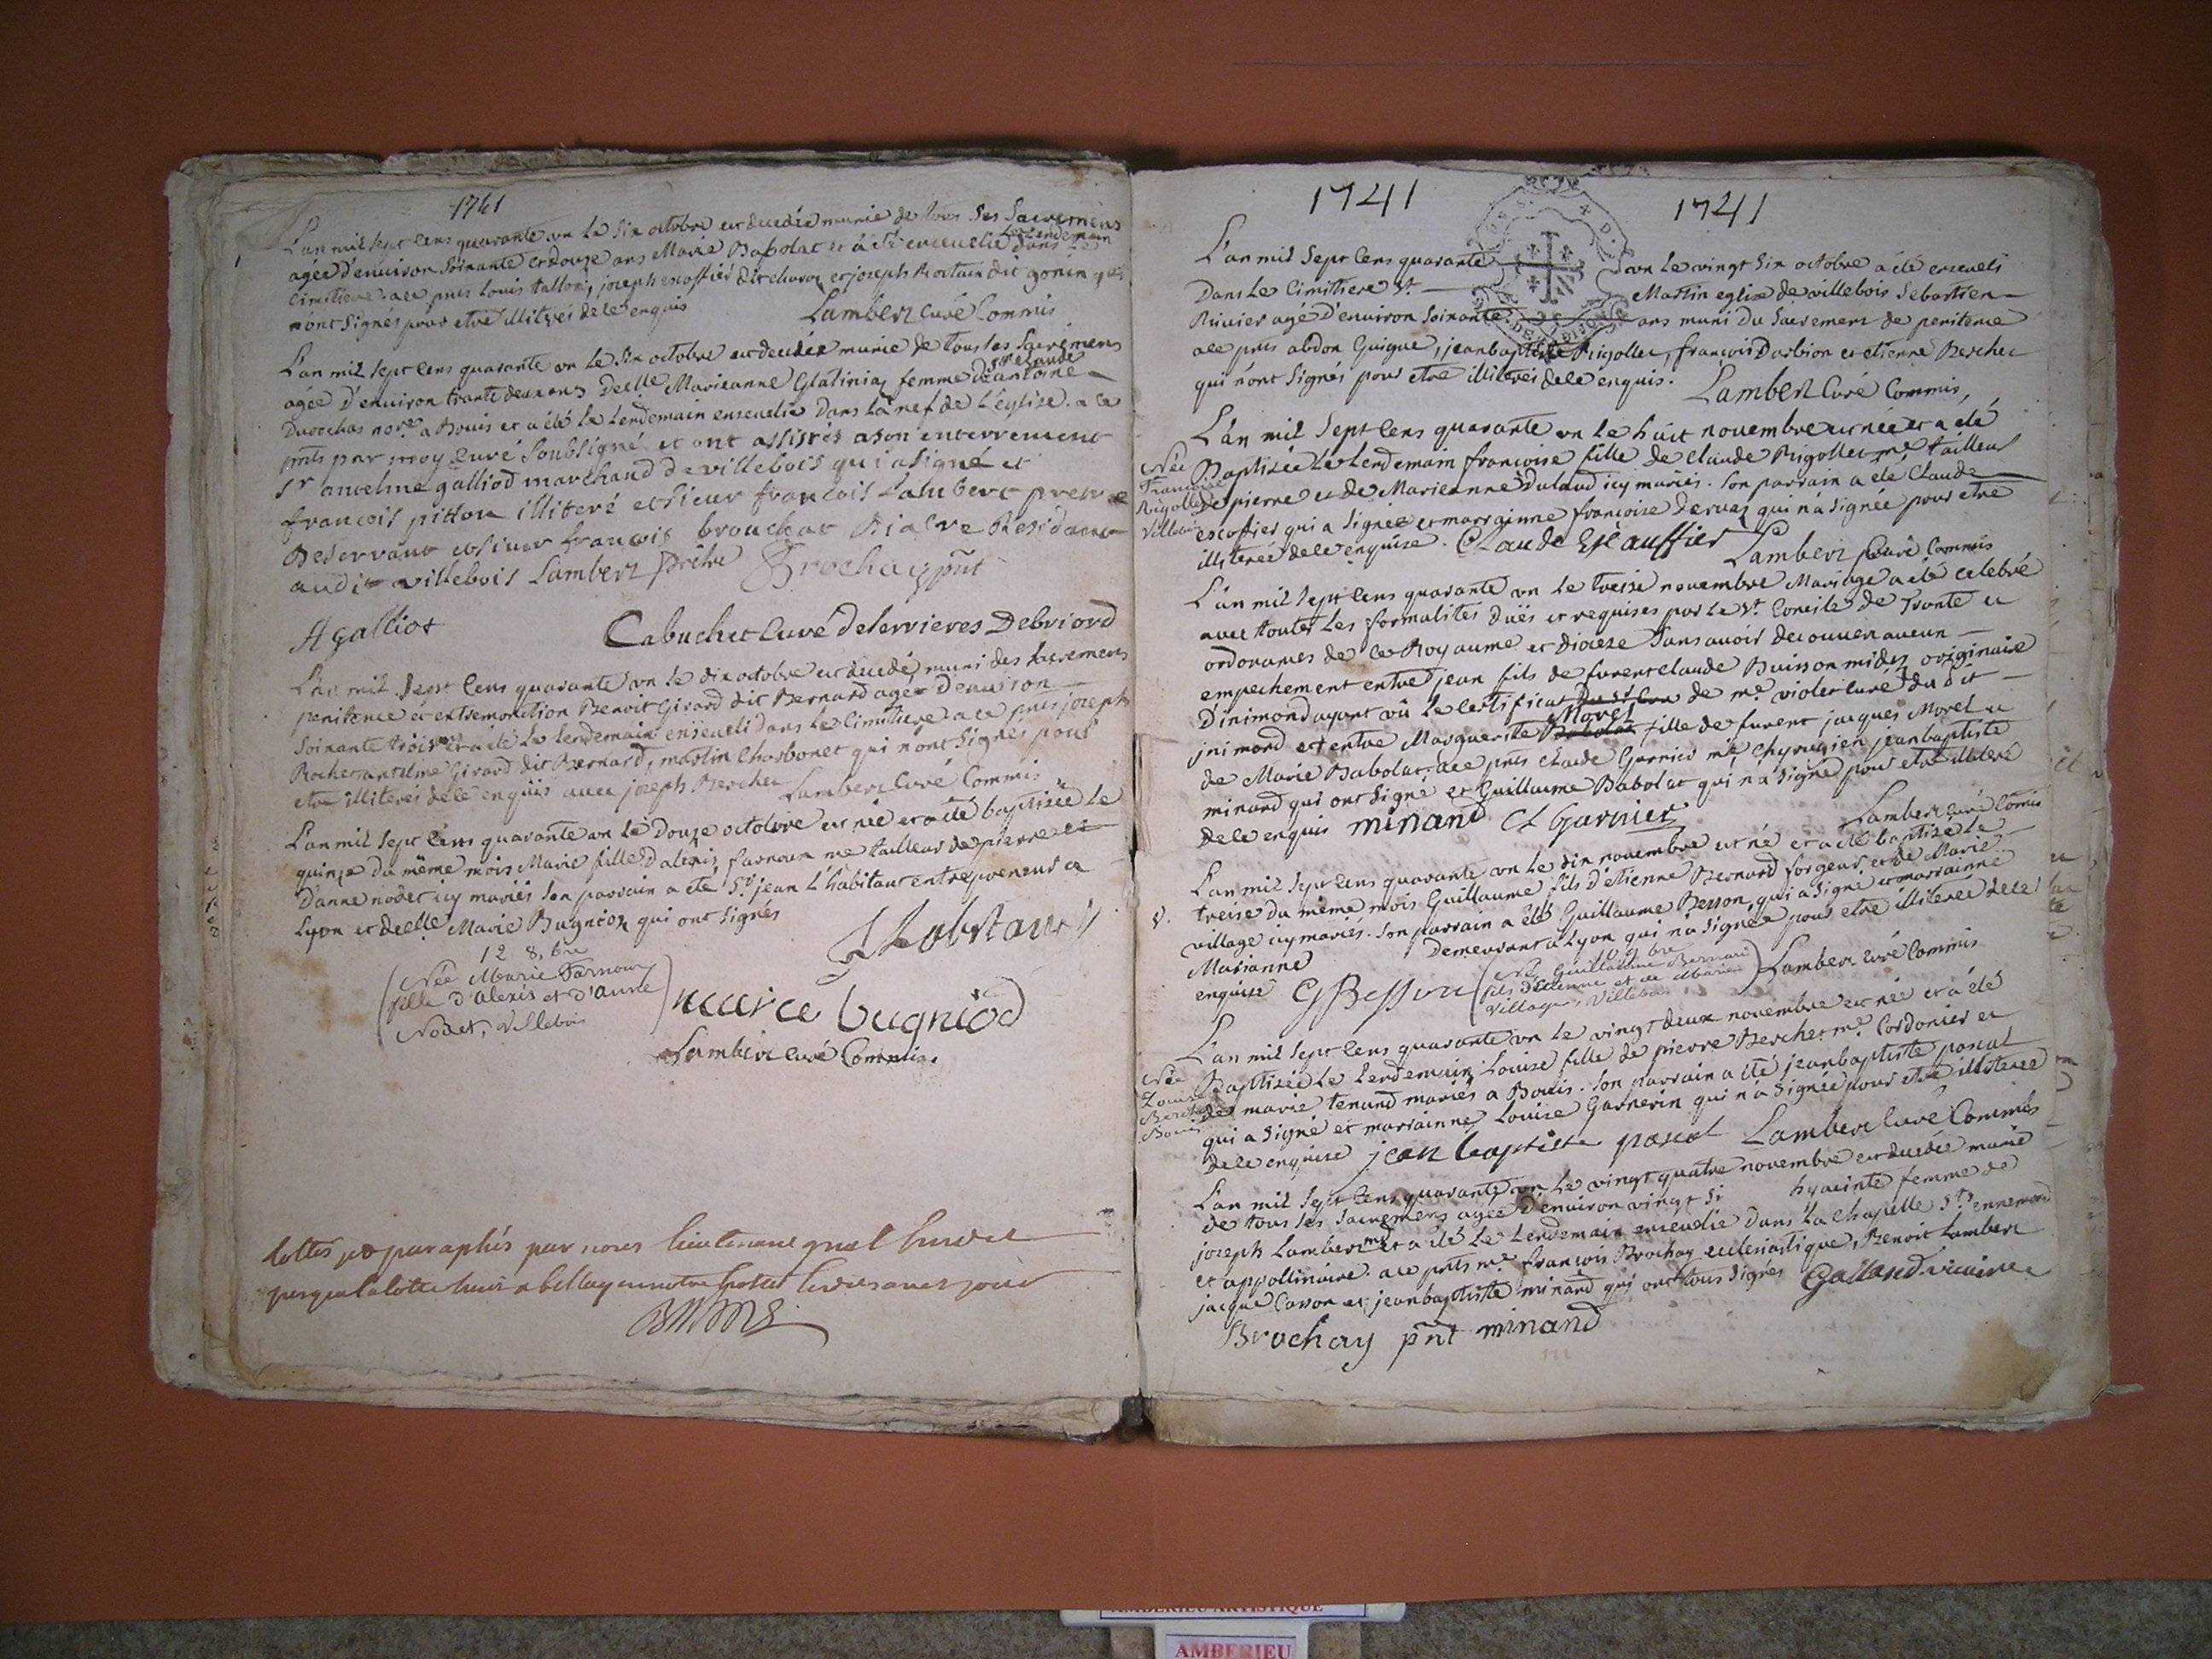 1741
L'an mil sept cens quarante un le six octobre est decedée munie de tous ses sacremens
agée d'environ soixante et douze ans Marie Babolat et a été ensevelie le lendemain dans le
cimitiere. ace pnts louis tallon, joseph escoffier dit charon et joseph Rostain dit gonin qui
n'ont signés pour etre illiterés de ce enquis Lambert Curé Commis
L'an mil sept cens quarante un le six octobre est decedée munie de tous ses sacremens
agée d'environ trante deux ans Delle Marieanne Glatiniaz femme de Sr Claude antoine
Durochas nore a Bouis et a été le lendemain ensevelie dans la nef de L'église. a ce
pnts par moy curé soubsigné et ont assistés a son enterrement
Sr anselme galliod marchand de villebois qui a signé et
francois pitton illiteré et sieur francois Lambert pretre
Deservant et sieur francois brouchat Diacre Residant
audit villebois Lambert prêtre Brochay pnt
A galliot Cabuchet Curé de serrieres Debriord
L'an mil sept cens quarante un le dix octobre est decedé muni des sacremens
penitence et extremonction Benoit Girard dit Bernard age d'environ
soixante trois ans et a été le lendemain enseveli dans le cimitiere. a ce pnts joseph
Rochet antelme Girard dit Bernard, martin Charbonet qui n'ont signés pour
etre illiterés de ce enquis avec joseph Berchet Lambert Curé Commis
L'an mil sept cens quarante un le douze octobre est née et a été baptisée le
quinze du même mois Marie fille d'alexis farnoux me tailleur de pierre et
d'anne nodet icy mariés son parrain a été Sr jean L'habitant entrepreneur a
Lyon et delle Marie Bugnion qui ont signés
12 8.bre
(Née Marie Farnoux
fille d'Alexis et d'Anne
Nodet, Villebois)
JLabitant
marie bugniod
Lambert curé Commis.
Cottes et paraphés par nous lieutenant gnal
jusques a la cotte huit a belley en notre hostel
1741 1741
L'an mil sept cens quarante un le vingt six octobre a été enseveli
Dans le Cimitiere St Martin eglise de villebois Sebastien
Rivier agé d'environ soixante ans muni du sacrement de penitence
ace pnts abdon Guigue, jeanbaptiste Rigollet, françois Darbion et etienne Berchet
qui n'ont signés pour etre illiterés de ce enquis. Lambert Curé Commis,
L'an mil sept cens quarante un le huit novembre est née et a été
Baptisée le lendemain francoise fille de Claude Rigollet me tailleur
de pierre et de Marieanne Dulaud icy mariés. son parrain a été Claude
escoffier qui a signée et marrainne francoise dervaz qui n'a signée pour etre
illiterée de ce enquise. Claude Escauffier Lambert Curé Commis
Née
Francoise
Rigollet
Villebois
L'an mil sept cens quarante un le treise novembre Mariage a été celebré
avec toutes les formalités duës et requises par le St. Concile de Trante et
ordonances de ce Royaume et diocese sans avoir decouvert aucun
empechement entre jean fils de furent claude Buisson midez originaire
D'inimond ayant vû le certificat de me violet curé du dit
jnimond et entre Marguerite Morel fille de furent jacques Morel et
de Marie Babolat. ace pnts claude Garnier me Chyrugien jeanbaptiste
minand qui ont signé et Guillaume Babolat qui n'a signé pour etre illiteré
de ce enquis minand Cl Garnier Lambert curé Commis
L'an mil sept cens quarante un le dix novembre est né et a été baptisé le
treise du même mois Guillaume fils d'etienne Bernard forgeur et de Marie
village icy mariés. son parrain a été Guillaume Besson, qui a signé et marrainne
Marianne Demeurant a Lyon qui n'a signée pour etre illiterée de ce
enquise G Besson Lambert curé Commis
(Né Guillaume Bernard
fils d'Etienne et de Marie
Village, Villebois)
L'an mil sept cens quarante un le vingt deux novembre est née et a été
Baptisée le lendemain Louise fille de pierre Berchet me Cordonier et
de marie tenand mariés a Bouis. son parrain a été jeanbaptiste pascal
qui a signé et marrainne Louise Garnerin qui n'a signée pour etre illiterée
de ce enquise jean baptiste pascal Lambert Curé Commis
Née
Louise
Berchet
Bouis
L'an mil sept cens quarante un le vingt quatre novembre est decedée munie
de tous ses sacremens agée d'environ vingt si hyacinte femme de
joseph Lambert md et a été le lendemain ensevelie dans la chapelle Sts ennemond
et appollinaire. ace pnts me francois Brochay ecclesiastique, Benoit Lambert
jacque Carron et jeanbaptiste minand qui ont tous signés Galland vicaire
Brochay pnt minand
AMBERIEU ARTISTIQUE
AMBERIEU